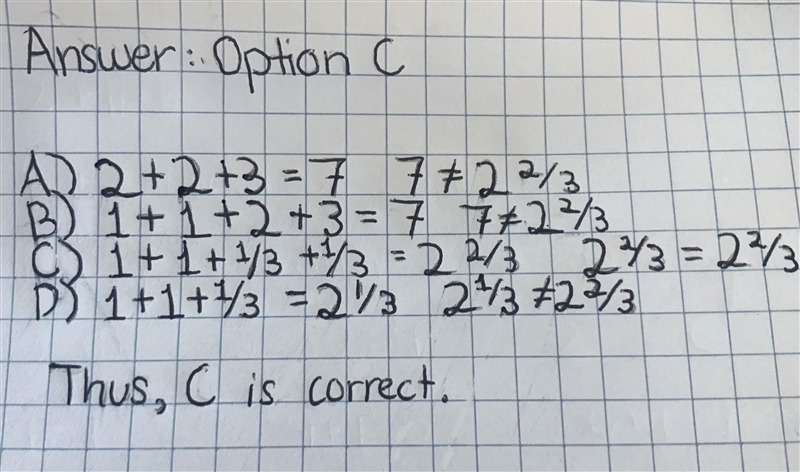 Answer: Option C
A) 2 + 2 + 3 = 7 7 ≠ 2 2/3
B) 1 + 1 + 2 + 3 = 7 7 ≠ 2 2/3
C) 1 + 1 + 1/3 + 1/3 = 2 2/3 2 2/3 = 2 2/3
D) 1 + 1 + 1/3 = 2 1/3 2 1/3 ≠ 2 2/3
Thus, C is correct.